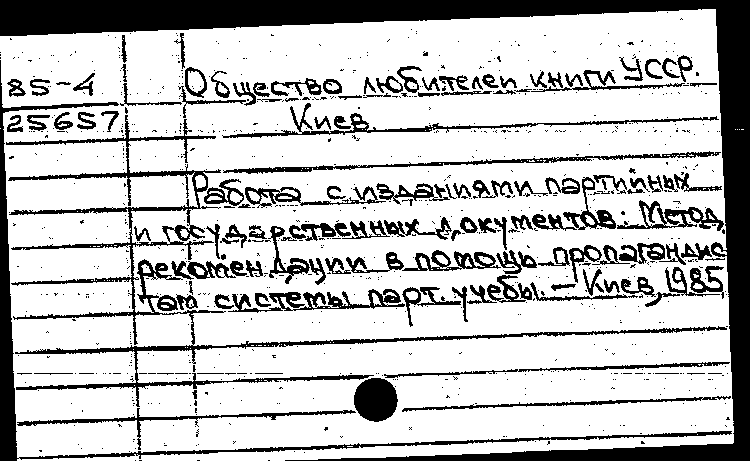 85-4 Общество любителей книги УССР.
25657 Киев.
Работа с изданиями партийных
и государственных документов: Метод.
рекомендации в помощь пропагандис
там системы парт. учебы. — Киев, 1985